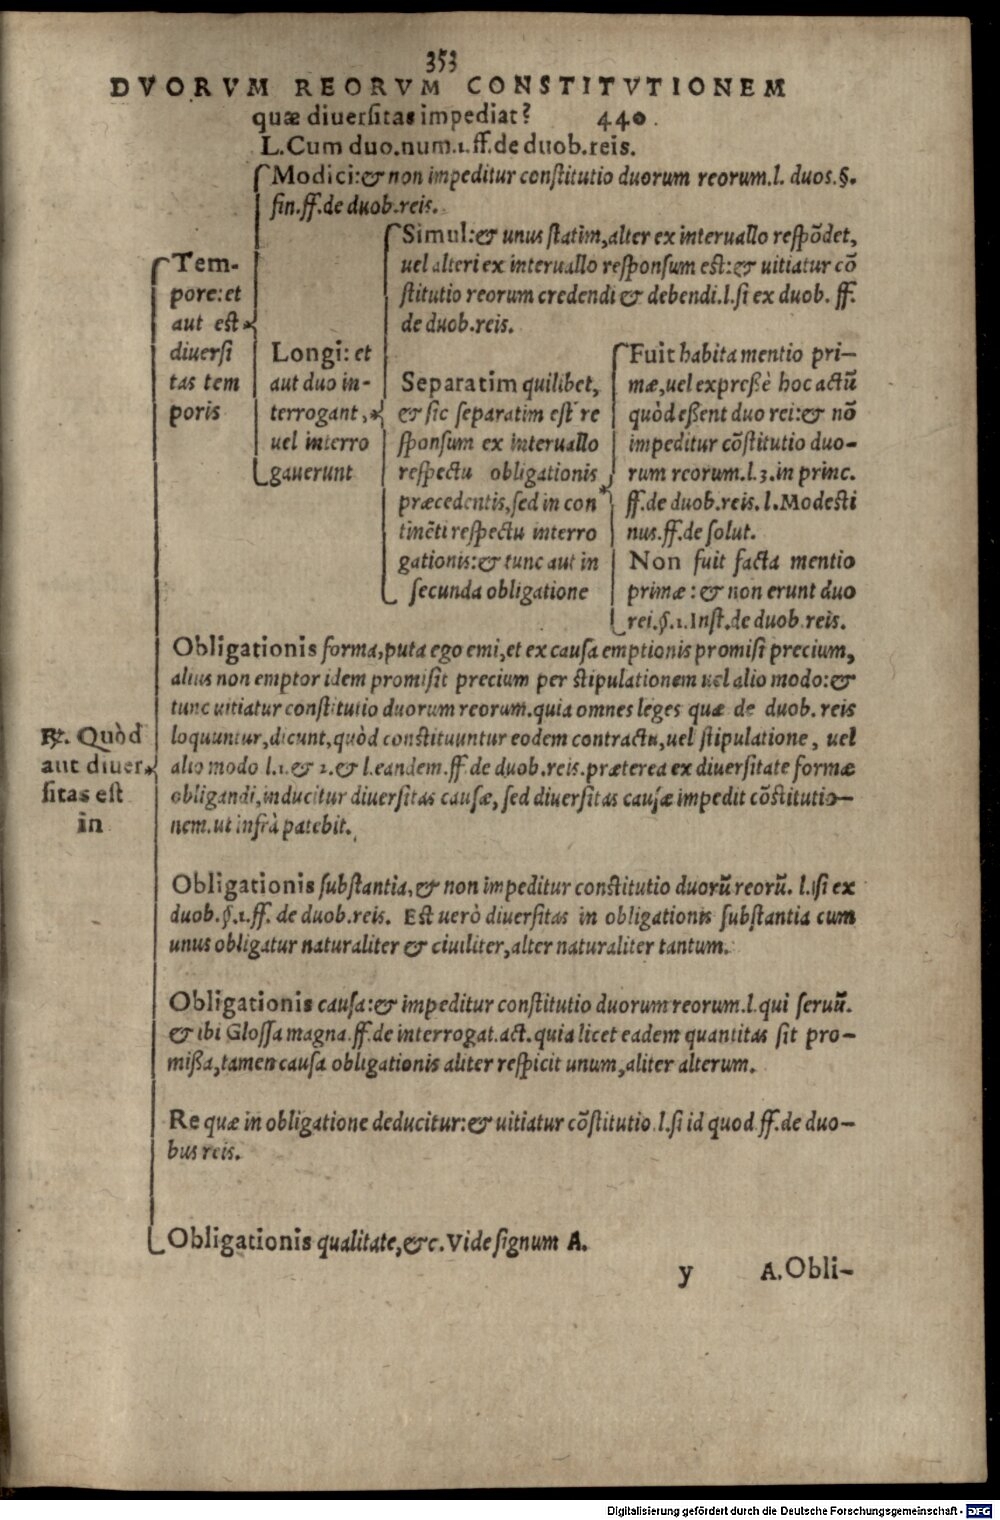 353
DVORVM REORVM CONSTITVTIONEM
quæ diuersitas impediat? 440.
L. Cum duo. num.1. ff. de duob. reis.
Modici: & non impeditur constitutio duorum reorum. l. duos. §.
fin. ff. de duob. reis.
Tem-
pore: et
aut est
diuersi
tas tem
poris
Longi: et
aut duo in-
terrogant,
uel interro
gauerunt
Simul: & unus statim, alter ex interuallo respõdet,
uel alteri ex interuallo responsum est: & uitiatur cõ
stitutio reorum credendi & debendi. l. si ex duob. ff.
de duob. reis.
Separatim quilibet,
& sic separatim est re
sponsum ex interuallo
respectu obligationis
præcedentis, sed in con
tinẽti respectu interro
gationis: & tunc aut in
secunda obligatione
Fuit habita mentio pri-
mæ, uel expreßè hoc actũ
quòd eßent duo rei: & nõ
impeditur cõstitutio duo-
rum reorum. l. 3. in princ.
ff. de duob. reis. l. Modesti
nus. ff. de solut.
Non fuit facta mentio
primæ: & non erunt duo
rei. §. 1. Inst. de duob. reis.
℞. Quòd
aut diuer
sitas est
in
Obligationis forma, puta ego emi, et ex causa emptionis promisi precium,
alius non emptor idem promisit precium per stipulationem uel alio modo: &
tunc uitiatur constitutio duorum reorum. quia omnes leges quæ de duob. reis
loquuntur, dicunt, quòd constituuntur eodem contractu, uel stipulatione, uel
alio modo l. 1. & 2. & l. eandem. ff. de duob. reis. præterea ex diuersitate formæ
obligandi, inducitur diuersitas causæ, sed diuersitas causæ impedit cõstitutio-
nem. ut infrà patebit.
Obligationis substantia, & non impeditur constitutio duorũ reorũ. l. si ex
duob. §. 1. ff. de duob. reis. Est uerò diuersitas in obligationis substantia cum
unus obligatur naturaliter & ciuiliter, alter naturaliter tantum.
Obligationis causa: & impeditur constitutio duorum reorum. l. qui seruũ.
& ibi Glossa magna. ff. de interrogat. act. quia licet eadem quantitas sit pro-
mißa, tamen causa obligationis aliter respicit unum, aliter alterum.
Re quæ in obligatione deducitur: & uitiatur cõstitutio. l. si id quod ff. de duo-
bus reis.
Obligationis qualitate, &c. Vide signum A.
y A. Obli-
Digitalisierung gefördert durch die Deutsche Forschungsgemeinschaft - DFG